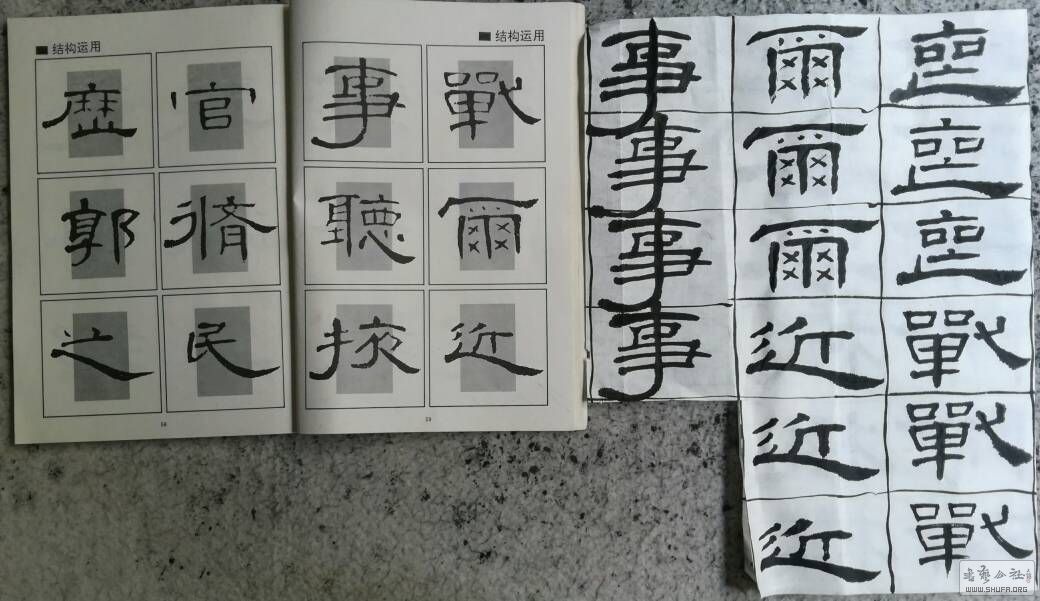 结构运用
官脩民
歷郭之
结构运用
戰爾近
事聽掖
戰戰戰
爾爾爾近近近
事事事事
书艺公社
WWW.SHUFA.ORG